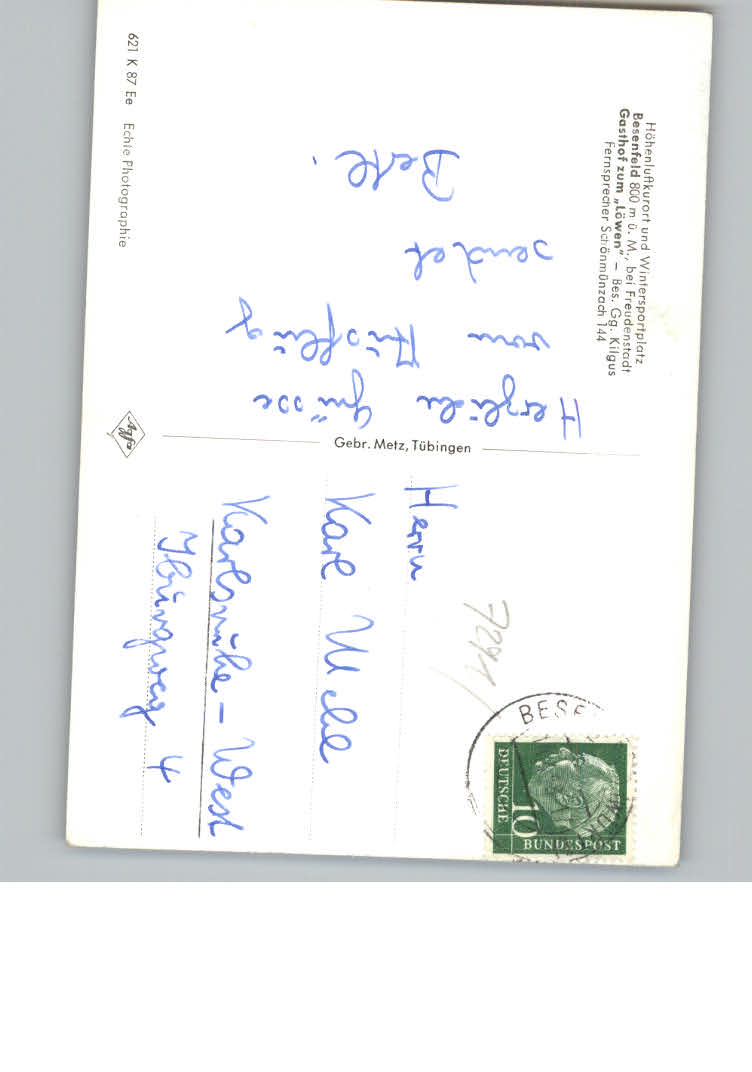 Höhenluftkurort und Wintersportplatz
Besenfeld 800 m ü. M., bei Freudenstadt
Gasthof zum „Löwen" – Bes. Gg. Kilgus
Fernsprecher Schönmünzach 144
Herzliche Grüsse
vom Ausflug
sendet
621 K 87 Ee Echte Photographie
Agfa
Gebr. Metz, Tübingen
Herrn
Karl
Karlsruhe-West
4
7291
BESE
DEUTSCHE
10
BUNDESPOST